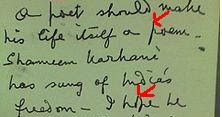 a poet should make
his life itself a poem.
Shameem Karhani
has sung of India's
freedom – I hope he